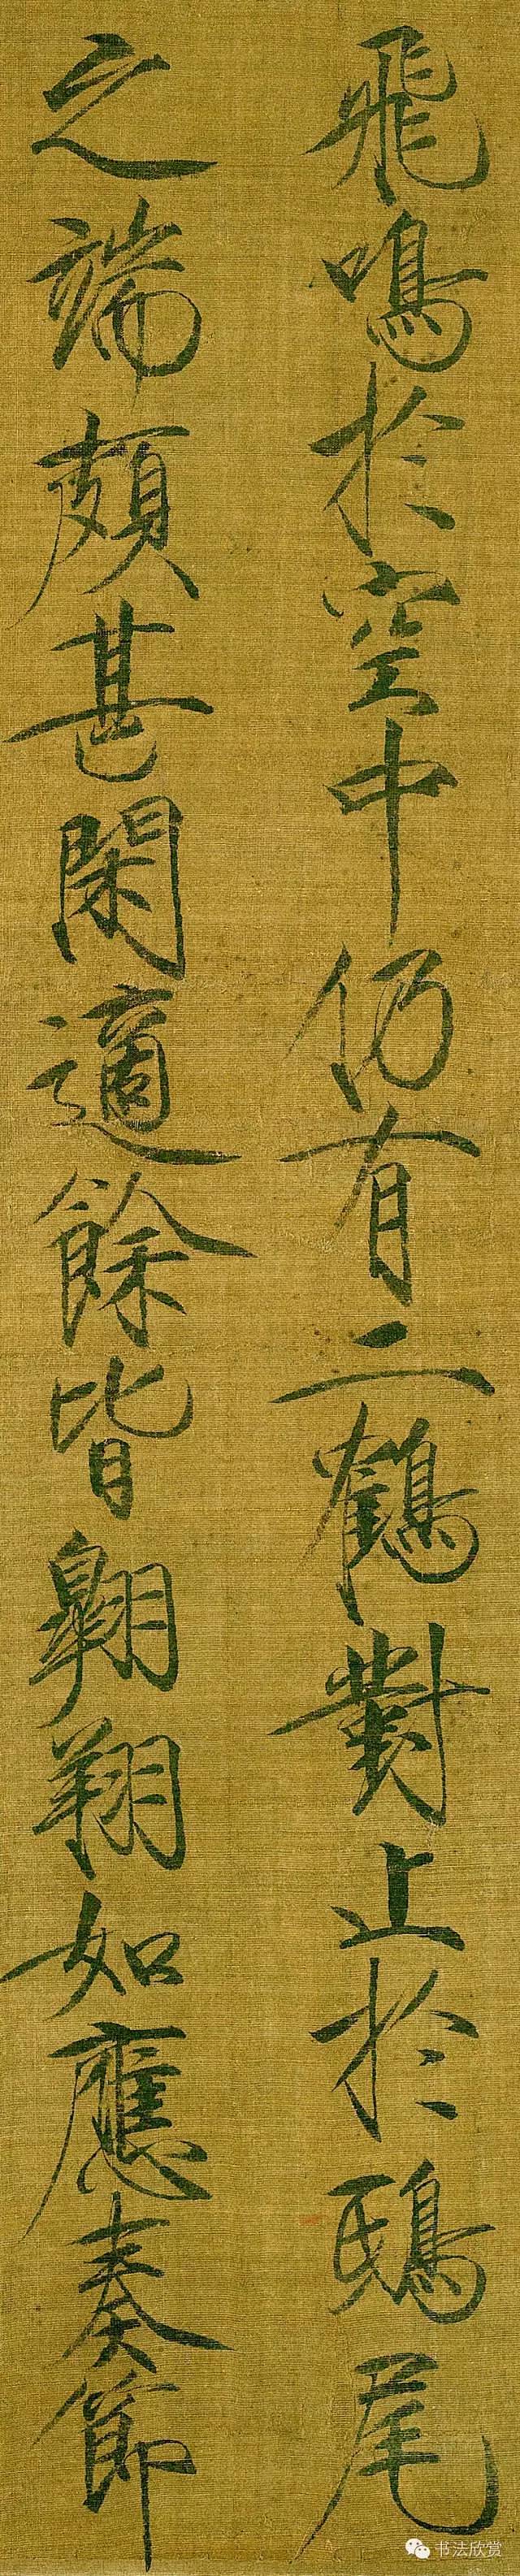 飛鳴於空中仍有二鶴對止於鴟尾
之端頗甚閑適餘皆翱翔如應奏節
书法欣赏